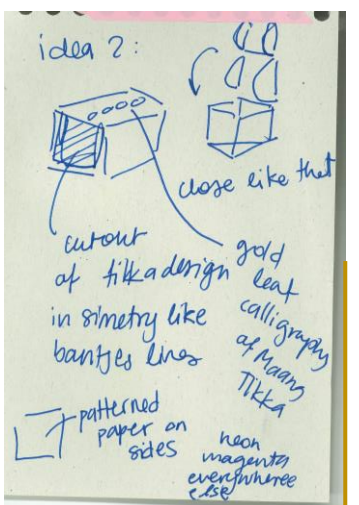 idea 2:
close like that
cutout
of tikka design
in simetry like
bantjes lines
gold
leaf
calligraphy
of Maang
Tikka
patterned
paper on
sides
neon
magenta
everywheree
else